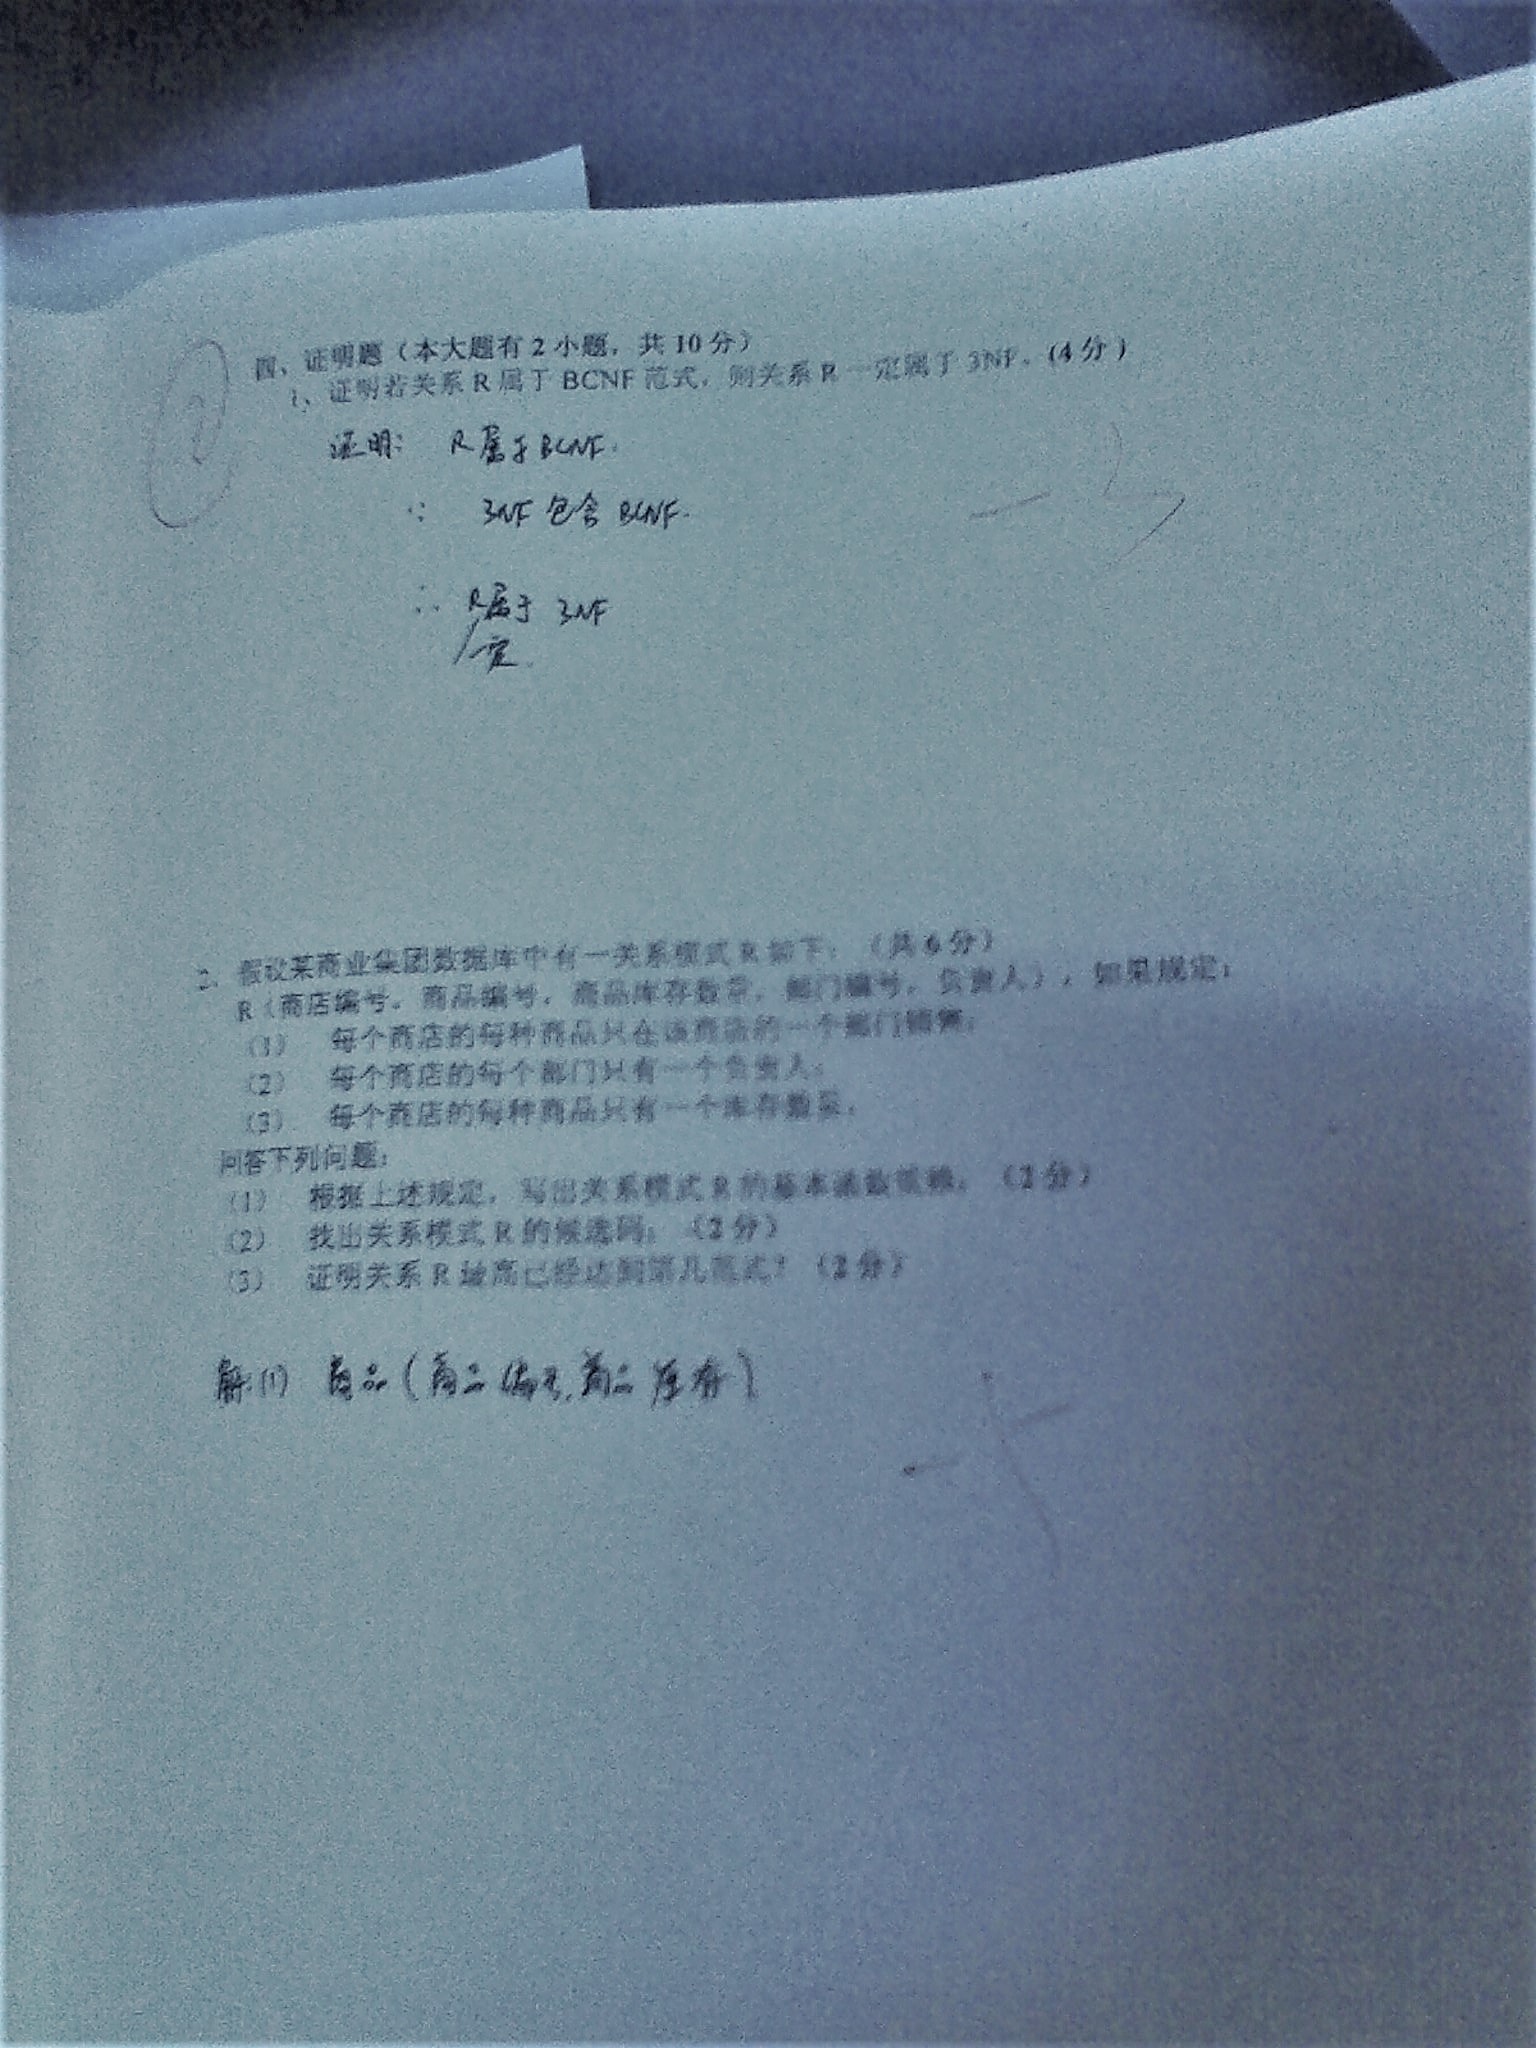 四、证明题（本大题有 2 小题，共 10 分）
1、证明若关系 R 属于 BCNF 范式，则关系 R 一定属于 3NF。(4 分)
证明: R属于BCNF.
∵ 3NF 包含 BCNF.
∴ R属于 3NF
一定.
2. 假设某商业集团数据库中有一关系模式 R 如下：（共 6 分）
R（商店编号，商品编号，商品库存数量，部门编号，负责人），如果规定：
（1） 每个商店的每种商品只在该商店的一个部门销售；
（2） 每个商店的每个部门只有一个负责人；
（3） 每个商店的每种商品只有一个库存数量。
回答下列问题：
（1） 根据上述规定，写出关系模式 R 的基本函数依赖；（2 分）
（2） 找出关系模式 R 的候选码；（2 分）
（3） 证明关系 R 最高已经达到第几范式？（2 分）
解:(1) 商品(商品编号,商品库存)